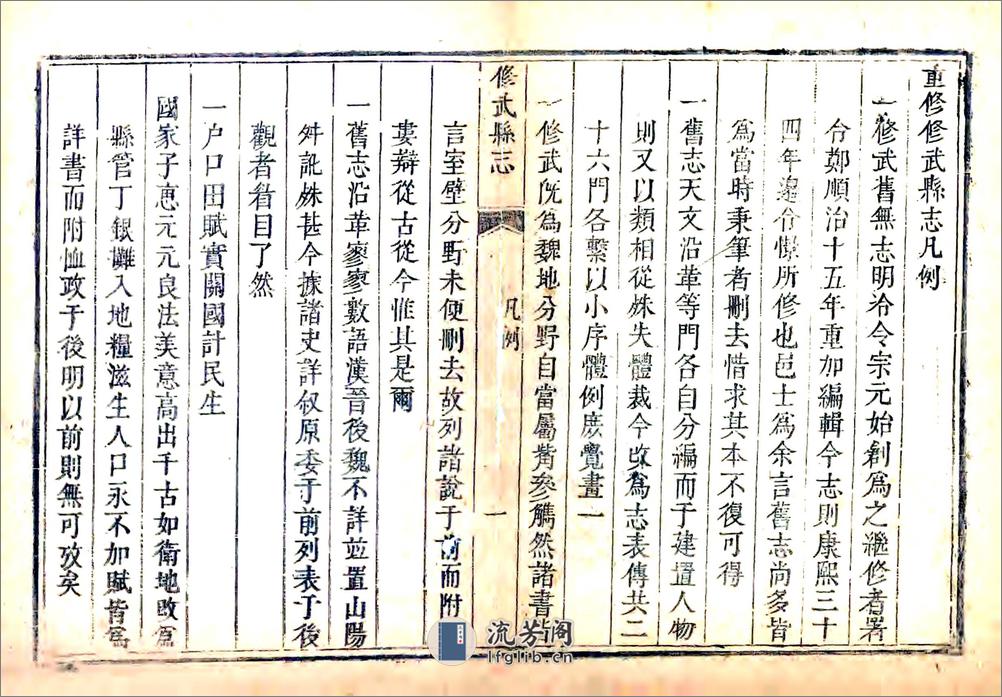 重修修武縣志凡例
一修武舊無志明冷令宗元始創為之繼修者署
令鄭順治十五年重加編輯今志則康熙三十
四年邊令憬所修也邑士為余言舊志尚多皆
為當時秉筆者刪去惜求其本不復可得
一舊志天文沿革等門各自分編而于建置人物
則又以類相從姝失體裁今改為志表傳共二
十六門各繫以小序體例庶覺畫一
一修武旣為魏地分野自當屬觜參觿然諸書
修武縣志
凡例
一
言室壁分野未便刪去故列諸說于前而附
婁辯從古從今惟其是爾
一舊志沿革寥寥數語漢晉後魏不詳並置山陽
舛訛姝甚今據諸史詳叙原委于前列表于後
觀者眥目了然
一户口田賦實關國計民生
國家子惠元元良法美意高出千古如衛地改為
縣管丁銀攤入地糧滋生人口永不加賦皆為
詳書而附恤政于後明以前則無可攷矣
流芳阁
lfglib.cn